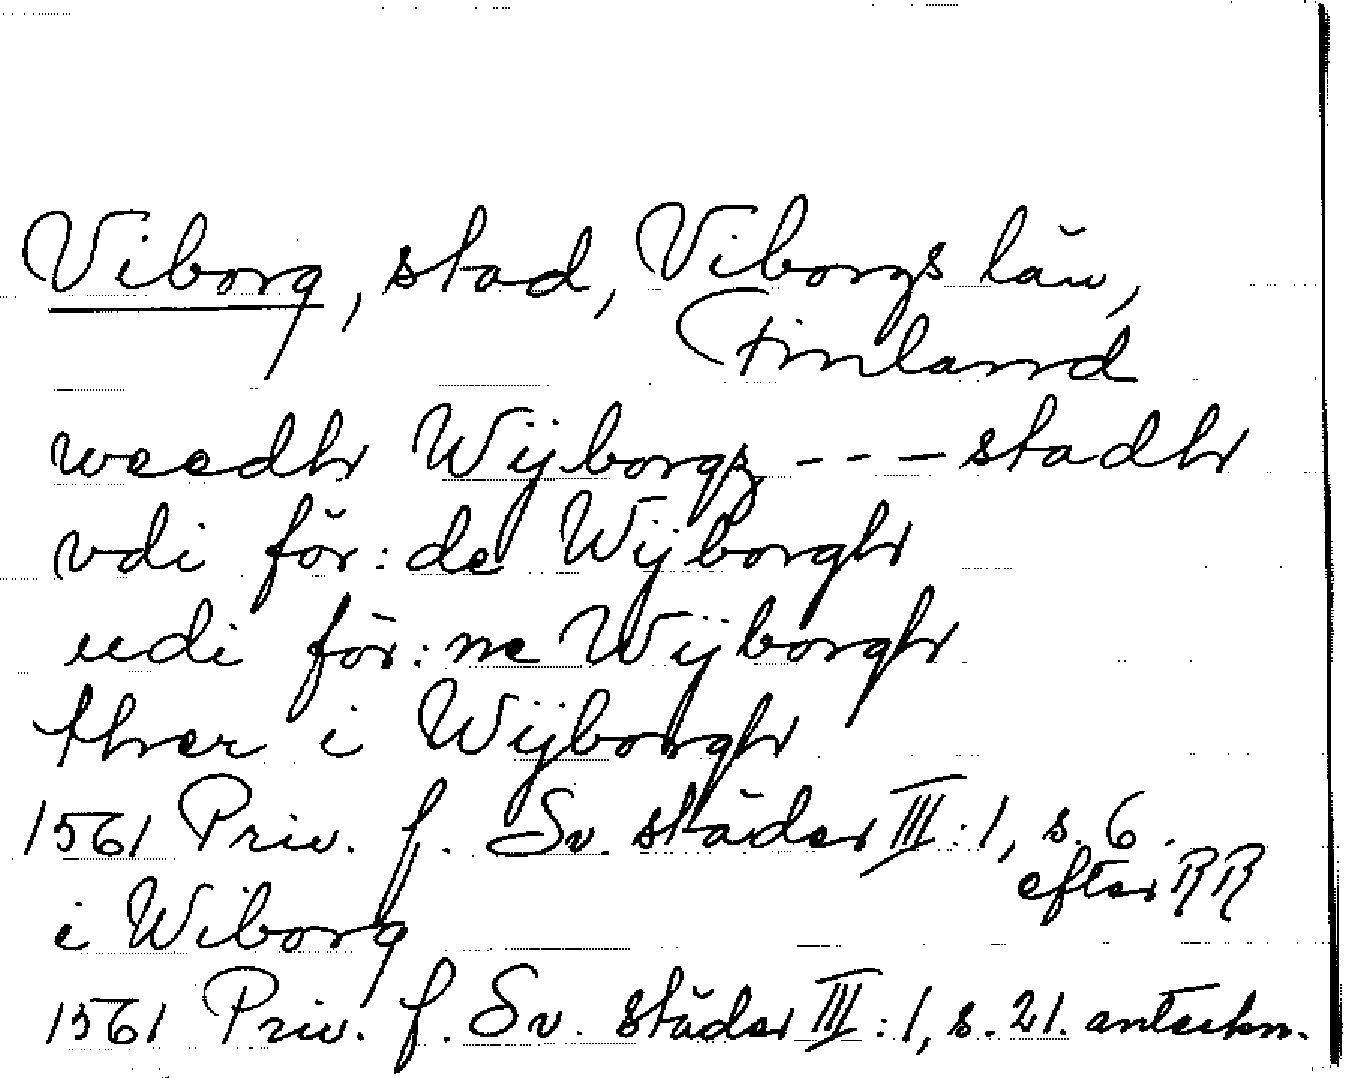 Viborg, stad, Viborgs län,
Finland
weedh Wijborgz --- stadh
vdi för:de Wijborgh
udi för:ne Wijborgh
ther i Wijborgh
1561 Priv. f. Sv. städer III:1, s. 6.
efter RR
i Wiborg
1561 Priv. f. Sv. städer III:1, s. 21. anteckn.